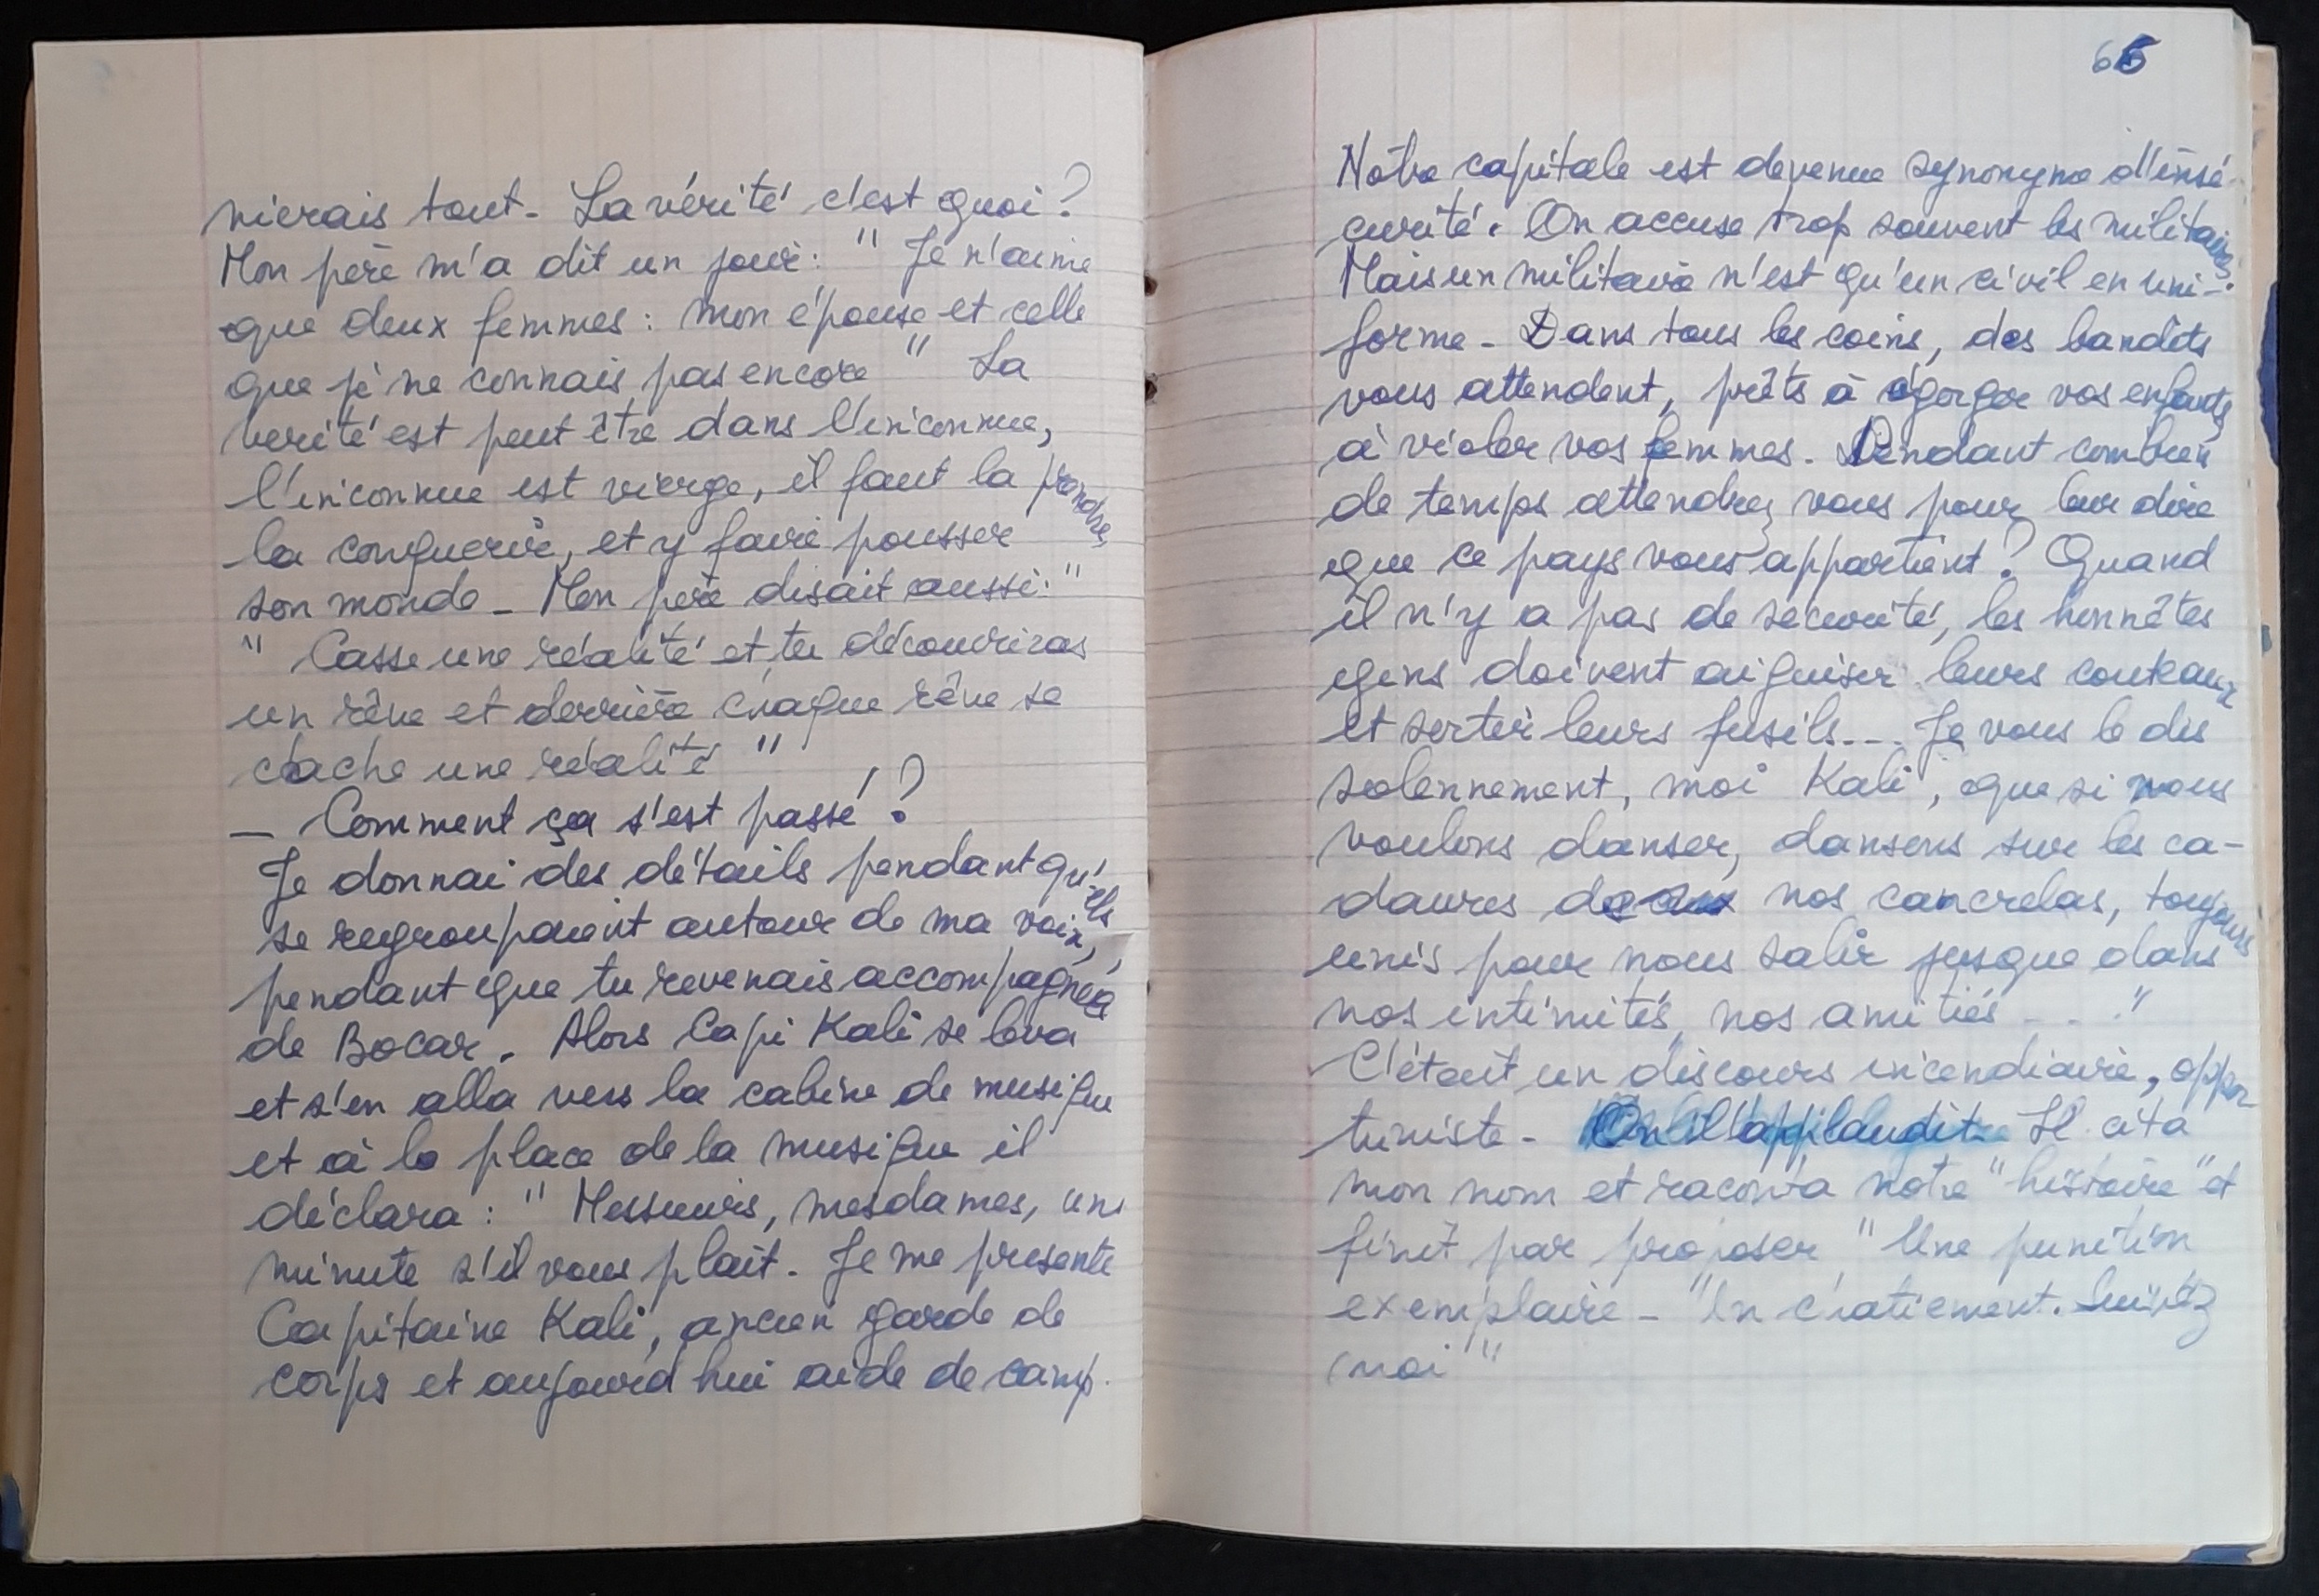 nierais tout - La vérité c'est quoi ?
Mon père m'a dit un jour : " Je n'aime
que deux femmes : mon épouse et celle
que je ne connais pas encore " La
verité est peut être dans l'inconnue,
l'inconnue est vierge, il faut la prendre,
la conquerir, et y faire pousser
son monde - Mon père disait aussi : "
" Casse une réalité et tu découvriras
un rêve et derrière chaque rêve se
cache une réalité "
- Comment ça s'est passé ?
Je donnai des détails pendant qu'ils
se regroupaient autour de ma voix,
pendant que tu revenais accompagnée
de Bocar. Alors Capi Kali se leva
et s'en alla vers la cabine de musique
et à la place de la musique il
déclara : " Messieurs, mesdames, une
minute s'il vous plait. Je me presente
Capitaine Kali, ancien garde de
corps et aujourd'hui aide de camp.
66
Notre capitale est devenue synonyme d'insé-
curité. On accuse trop souvent les militaires.
Mais un militaire n'est qu'un civil en uni-
forme - Dans tous les coins, des bandits
vous attendent, prêts à égorger vos enfants,
à violer vos femmes. Pendant combien
de temps attendrez vous pour leur dire
que ce pays vous appartient ? Quand
il n'y a pas de sécurité, les honnêtes
gens doivent aiguiser leurs couteaux
et sortir leurs fusils... Je vous le dis
solennement, moi Kali, que si nous
voulons danser, dansons sur les ca-
davres de nos cancrelas, toujours
unis pour nous salir jusque dans
nos intimités, nos amitiés . . . "
C'était un discours incendiaire, oppor-
tuniste - On l'applaudit. Il cita
mon nom et raconta notre " histoire " et
finit par proposer " Une punition
exemplaire - " Un chatiement. Suivez
moi "